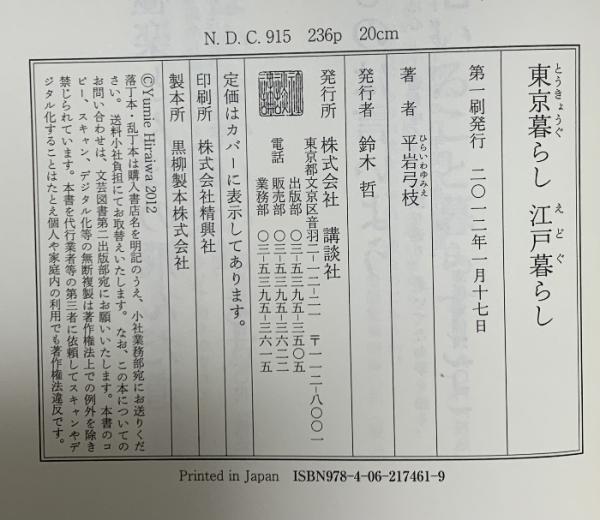 N. D. C. 915　236p　20cm
とうきょうぐ　えどぐ
東京暮らし 江戸暮らし
第一刷発行　二〇一二年一月十七日
ひらいわゆみえ
著　者　平岩弓枝
発行者　鈴木　哲
発行所　株式会社　講談社
東京都文京区音羽二-一二-二一　〒一一二-八〇〇一
電話　出版部　〇三-五三九五-三五〇五
販売部　〇三-五三九五-三六二二
業務部　〇三-五三九五-三六一五
定価はカバーに表示してあります。
印刷所　株式会社精興社
製本所　黒柳製本株式会社
©Yumie Hiraiwa 2012
落丁本・乱丁本は購入書店名を明記のうえ、小社業務部宛にお送りくだ
さい。送料小社負担にてお取替えいたします。なお、この本についての
お問い合わせは、文芸図書第二出版部宛にお願いいたします。本書のコ
ピー、スキャン、デジタル化等の無断複製は著作権法上での例外を除き
禁じられています。本書を代行業者等の第三者に依頼してスキャンやデ
ジタル化することはたとえ個人や家庭内の利用でも著作権法違反です。
Printed in Japan　ISBN978-4-06-217461-9